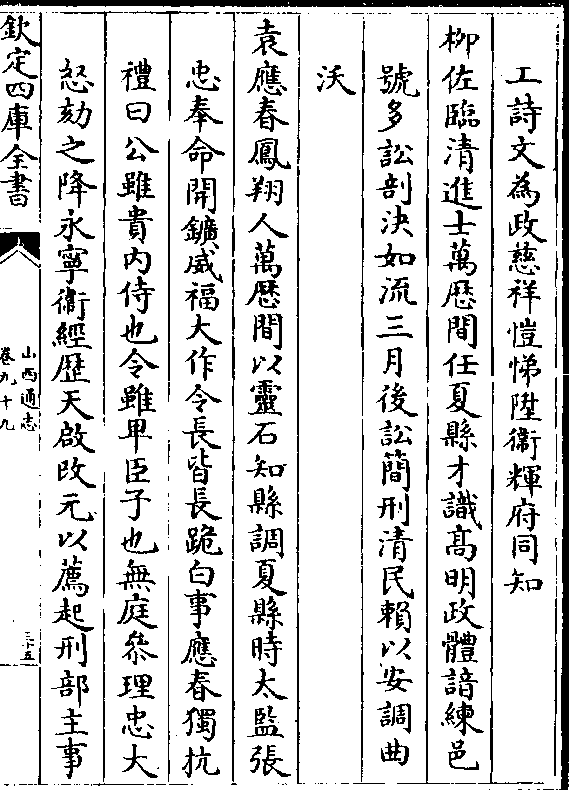 工詩文為政慈祥愷悌陞衞輝府同知
柳佐臨清進士萬厯間任夏縣才識髙明政體諳練邑
號多訟剖決如流三月後訟簡刑清民賴以安調曲
沃
袁應春鳳翔人萬厯間以靈石知縣調夏縣時太監張
忠奉命開鑛威福大作令長皆長跪白事應春獨抗
禮曰公雖貴内侍也令雖卑臣子也無庭叅理忠大
怒劾之降永寧衞經厯天啟改元以薦起刑部主事
欽定四庫全書
山西通志
卷九十九
三十五